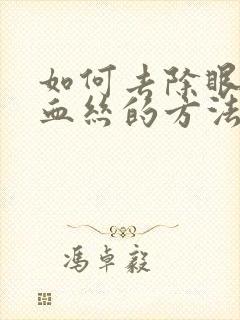 如何去除眼
血丝的方法
冯卓毅